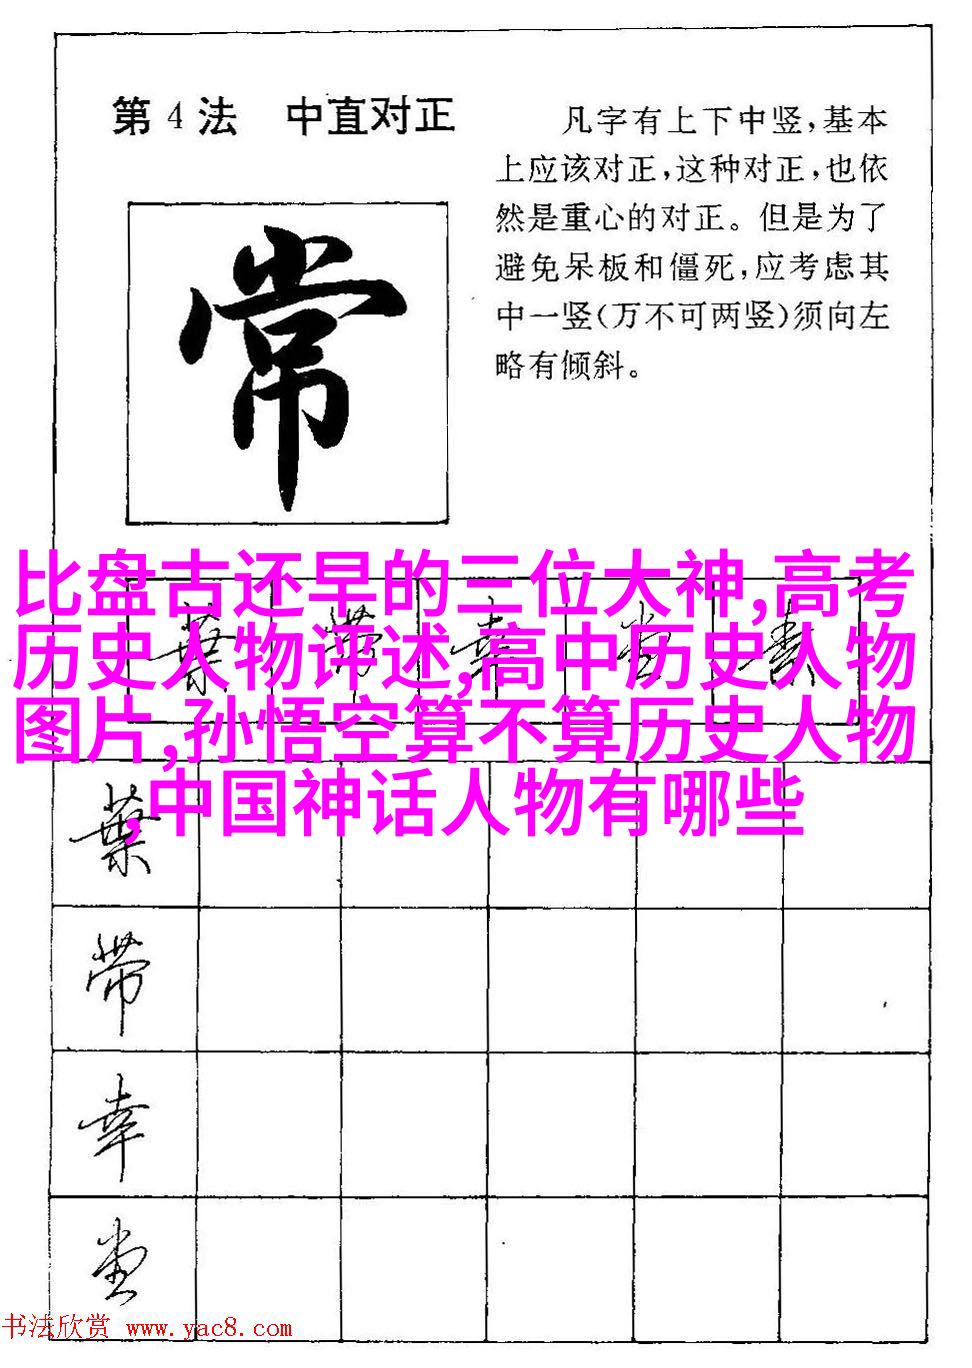 第4法 中直对正
凡字有上下中竖,基本
上应该对正,这种对正,也依
然是重心的对正。但是为了
避免呆板和僵死,应考虑其
中一竖(万不可两竖)须向左
略有倾斜。
常
比盘古还早的三位大神,高考
历史人物评述,高中历史人物
图片,孙悟空算不算历史人物
,中国神话人物有哪些
葉 帶 幸 堂 素
葉
帶
幸
堂
书法欣赏 www.yac8.com